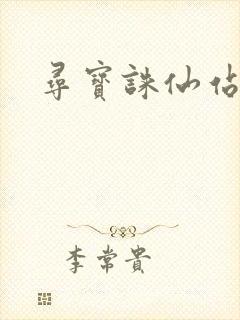 尋寶誅仙佔
李常貴